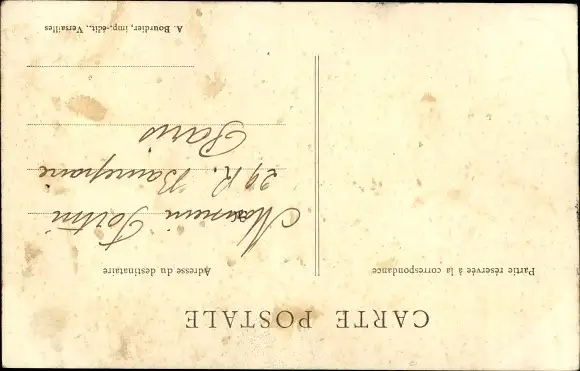 CARTE POSTALE
Partie réservée à la correspondance
Adresse du destinataire
Monsieur
29 R. Beaurepaire
Paris
A. Bourdier, imp.-édit., Versailles